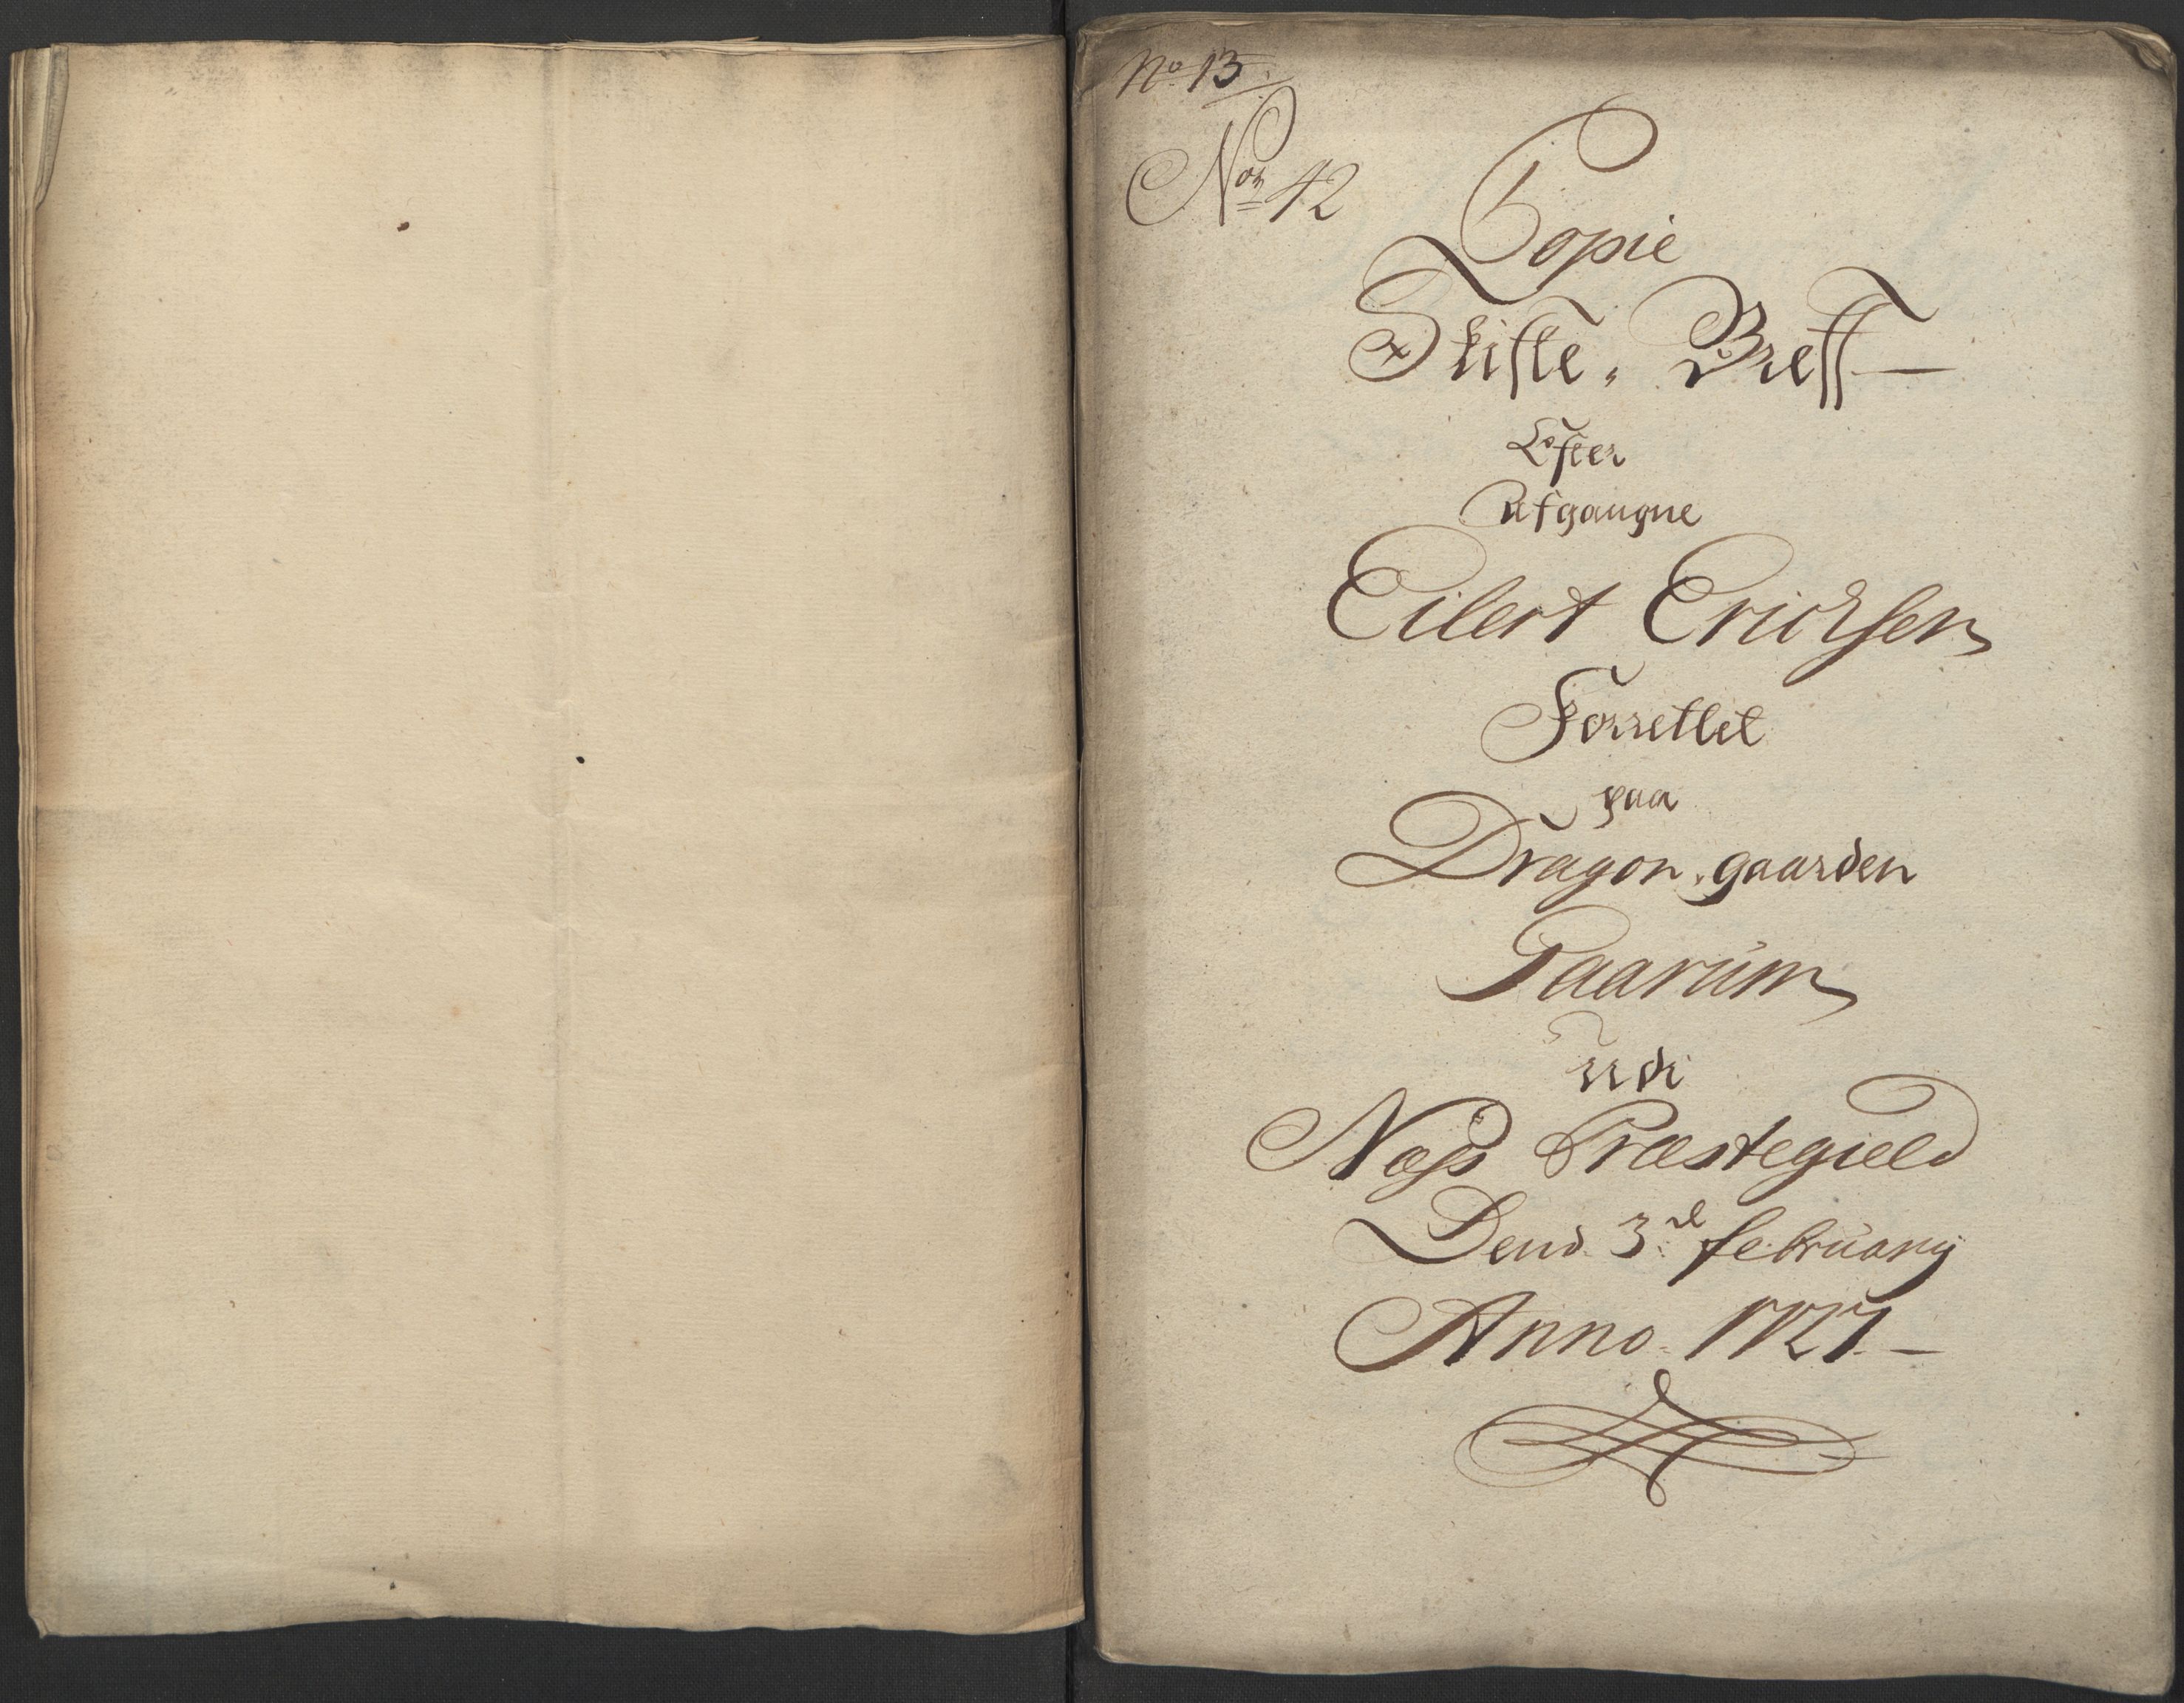 No 13.
No 42
Copie
Skifte, Breff
Efter
Afgangne
Eilert Erichsen
Forrettet
paa
Dragon, gaarden
Paarüm
udi
Næss Præstegield
Dend 3de february
Anno. 1727.